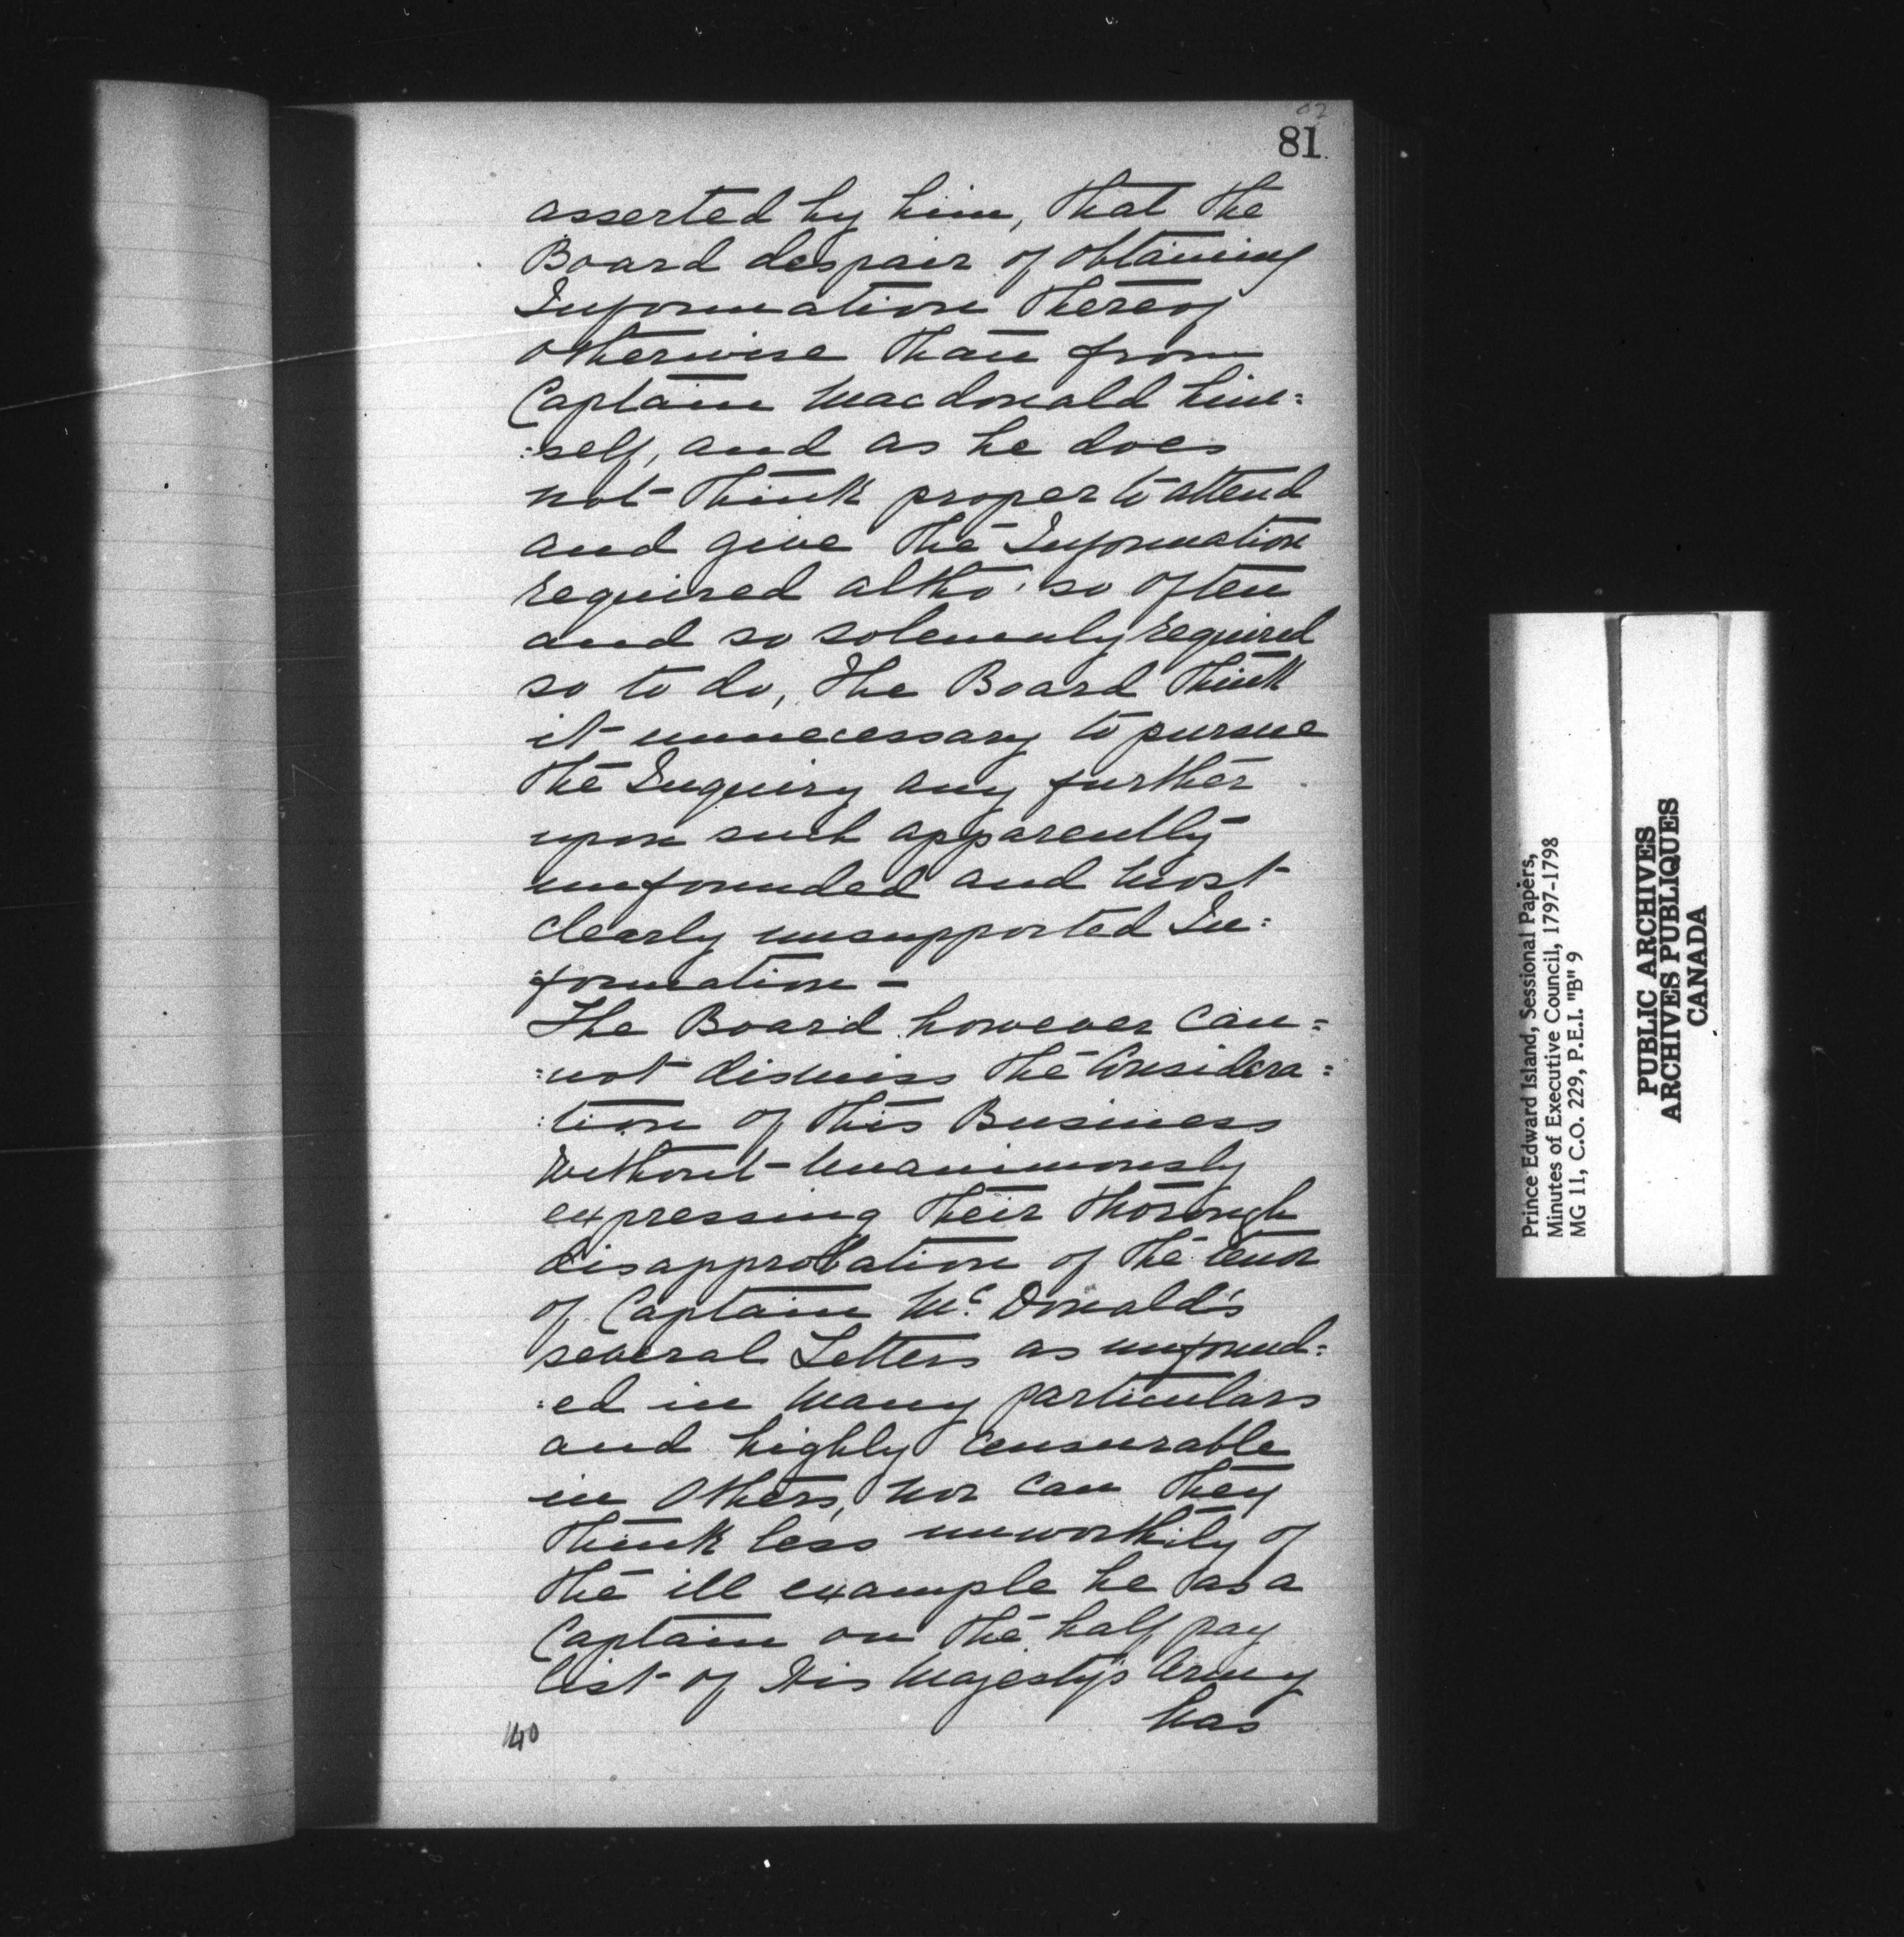 81
asserted by him, that the
Board despair of obtaining
Information thereof
otherwise than from
Captain Macdonald him=
=self, and as he does
not think proper to attend
and give the Information
required altho' so often
and so solemnly required
so to do, the Board think
it unnecessary to pursue
the Inquiry any further
upon such apparently
unfounded and most
clearly unsupported In=
=formation –
The Board however can=
=not dismiss the Considera=
=tion of this Business
without Unanimously
expressing their thorough
disapprobation of the tenor
of Captain Mc Donald's
several Letters as unfound=
=ed in many particulars
and highly Censurable
in Others, nor can they
think less unworthily of
the ill example he as a
Captain on the half pay
list of His Majesty's Army
has
140
Prince Edward Island, Sessional Papers,
Minutes of Executive Council, 1797-1798
MG 11, C.O. 229, P.E.I. "B" 9
PUBLIC ARCHIVES
ARCHIVES PUBLIQUES
CANADA